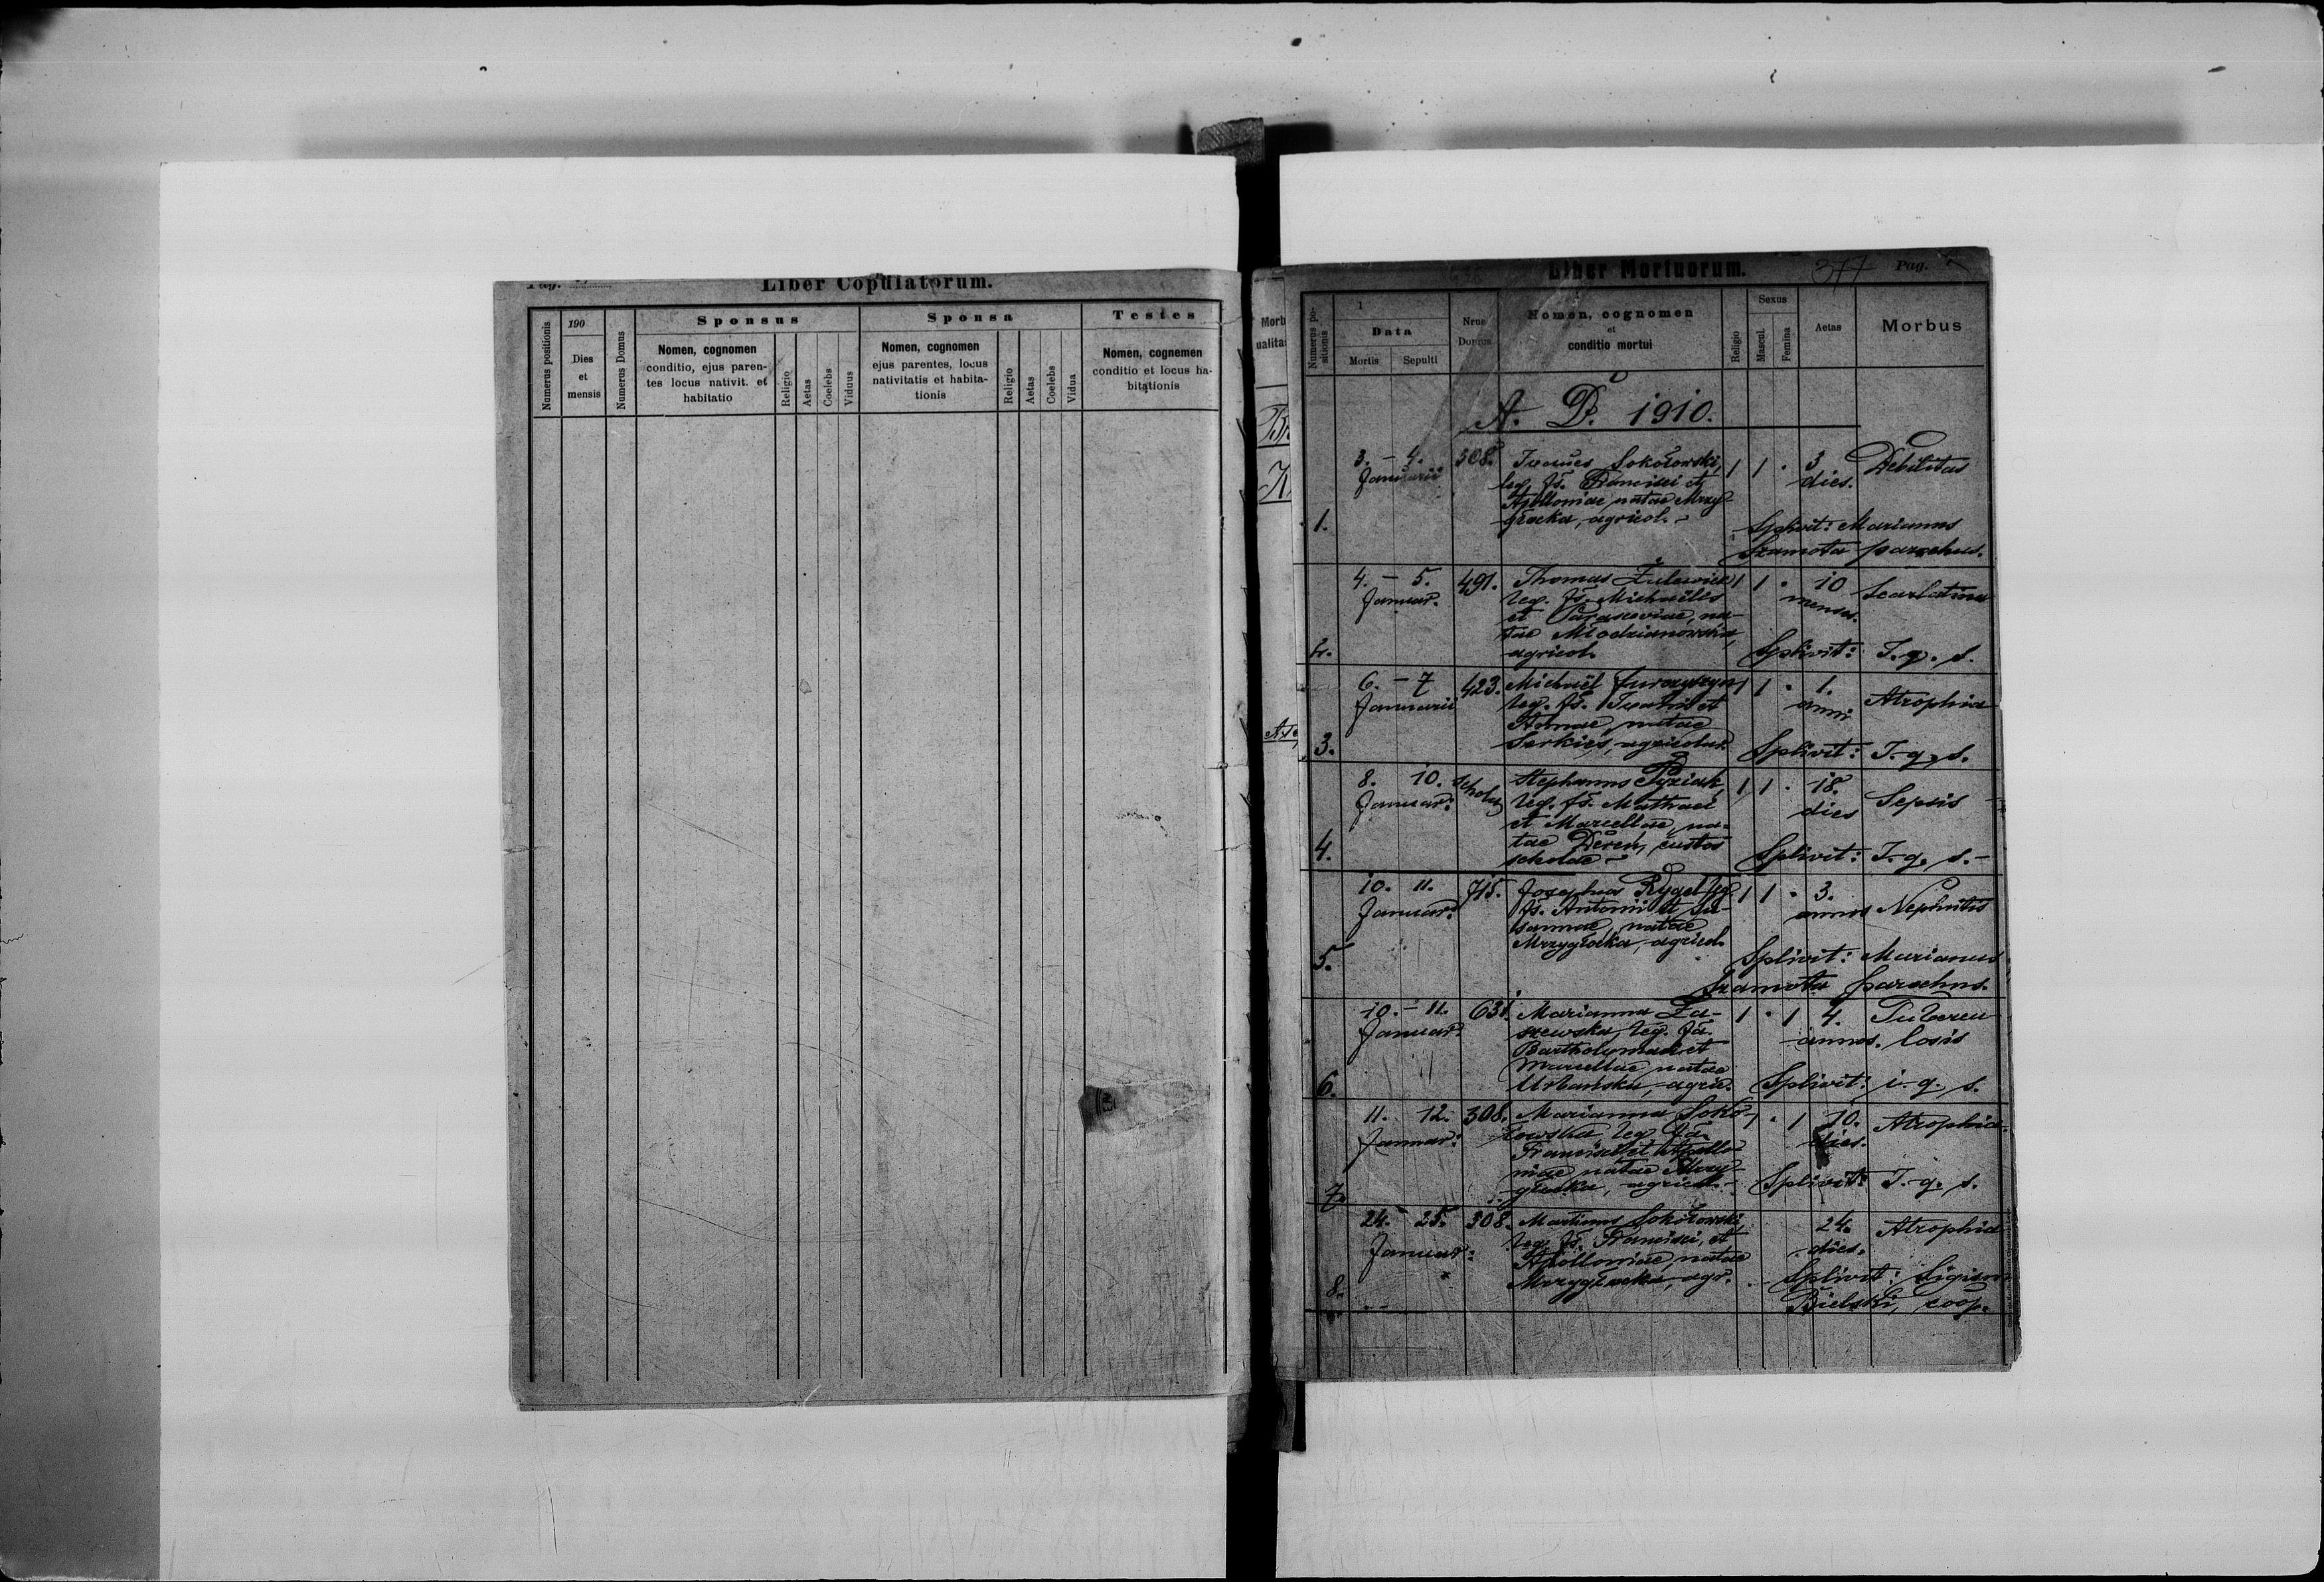 Liber Copulatorum.
Numerus positionis
190
Dies
et
mensis
Numerus Domus
Sponsus
Nomen, cognomen
conditio, ejus paren-
tes locus nativit. et
habitatio
Religio
Aetas
Coelebs
Viduus
Sponsa
Nomen, cognomen
ejus parentes, locus
nativitatis et habita-
tionis
Religio
Aetas
Coelebs
Vidua
Testes
Nomen, cognemen
conditio et locus ha-
bitationis
Liber Mortuorum.
377 Pag.
Numerus po-
sitionis
1
Data
Mortis
Sepulti
Nrus
Domus
Nomen, cognomen
et
conditio mortui
Religio
Sexus
Mascul.
Femina
Aetas
Morbus
A. D. 1910.
1.
3. - 4.
Januarii
308.
Sokołowski,
leg. fs. Francisci et
Apolloniae, natae Mrzy-
głocka, agricol. -
1 1 . 3
dies.
Debilitas
Splivit: Marianus
Szamota parochus.
2.
4. - 5.
Januar.
491.
Thomas
leg. fs. Michaëlis
et na-
tae Młodzianowska,
agricol.
1 1 . 10
menses.
Scarlatina
Splivit: I. q. s.
3.
6. - 7
Januarii
423.
Michaël
leg. fs. et
Annae natae
Serkies, agricolar.
1 1 . 1.
anni
Atrophia
Splivit: I. q. s.
4.
8. 10.
Januar.
Schola
Stephanus Pyziak,
leg. fs. Matthaei
et Marcellae, na-
tae Dereń, custos
scholae -
1 1 . 18.
dies
Sepsis
Splivit: I. q. s. -
5.
10. 11.
Januar.
715.
Josephus Rygel leg.
fs. Antonii et Su-
sannae, natae
Mrzygłocka, agricol.
1 1 . 3.
annos
Nephritis
Splivit: Marianus
Szamota parochus.
6.
10. - 11.
Januar.
631.
Marianna Za-
szewska, leg. fa.
Bartholomaei et
Marcellae natae
Urbańska, agric.
1 . 1 4.
annos.
Tubercu-
losis
Splivit: i. q. s.
7.
11. 12.
Januar:
308.
Marianna Soko-
łowska leg. fa.
Francisci et Apollo-
niae natae Mrzy-
głocka, agricol. -
1 . 1 10.
dies.
Atrophia
Splivit: I. q. s.
8.
24. 25.
Januar:
308.
Martinus Sokołowski,
leg. fs. Francisci, et
Apolloniae, natae
Mrzygłocka, agr.
24.
dies.
Atrophia
Splivit: Sigism.
Bielski, coop.